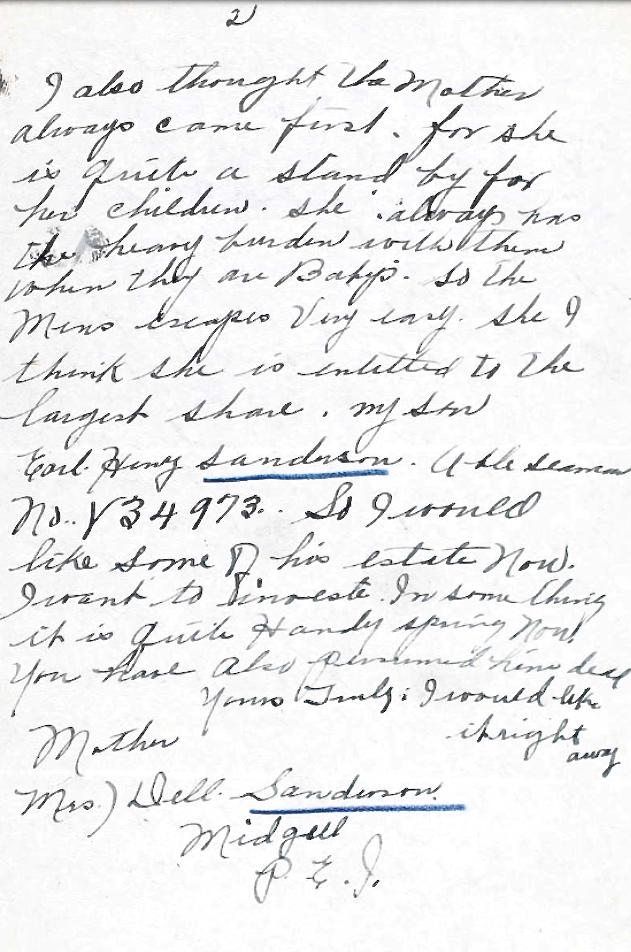 2
I also thought the Mother
always came first. for she
is quite a stand by for
her children. she always has
the heavy burden with them
when they are Babys. so the
Mens escapes Very easy. she I
think she is intitled to the
largest share. my son
Earl Henry Sanderson. Able seaman
No. V34973. So I would
like some of his estate Now.
I want to investe. In some thing
it is quite Handy spring Now!
You have also persumed him dead
Yours Truly: I would like
it right
away
Mother
Mrs.) Dell Sanderson.
Midgell
P. E. I.